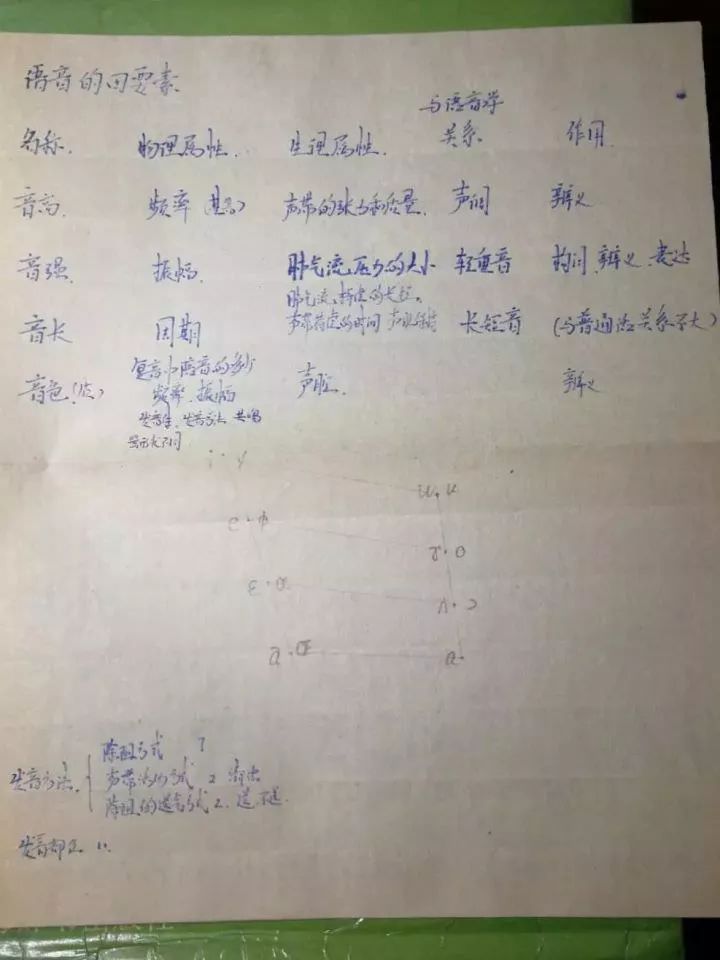 语音的四要素
与语音学
名称. 物理属性. 生理属性. 关系 作用
音高. 频率 声带的张力和质量. 声调 辨义
音强. 振幅. 肺气流压力的大小 轻重音 构词 辨义 表达
肺气流 的长短.
音长 周期 声带 的时间 长短音 (与普通话关系不大)
音色 复音 陪音的多少
频率. 振幅 声腔. 辨义
发音体、发音方法 共鸣
不同
i · y
ɯ · u
e · ø
ɤ · o
ɛ · œ
ʌ · ɔ
a · ɶ
ɑ ·
除阻方式 7
发音方法. 声带 方式 2 清浊
除阻的送气方式 2. 送 不送
发音部位 11.